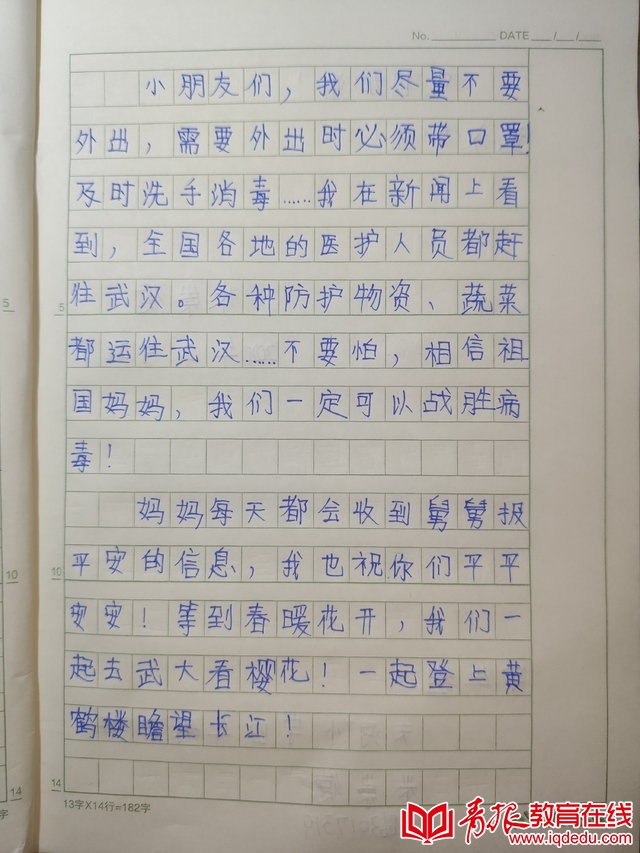 No.          DATE   /   /
小朋友们，我们尽量不要
外出，需要外出时必须带口罩！
及时洗手消毒……我在新闻上看
到，全国各地的医护人员都赶
往武汉。各种防护物资、蔬菜
都运往武汉……不要怕，相信祖
国妈妈，我们一定可以战胜病
毒！
妈妈每天都会收到舅舅报
平安的信息，我也祝你们平平
安安！等到春暖花开，我们一
起去武大看樱花！一起登上黄
鹤楼瞻望长江！
5
5
10
10
14
14
13字X14行=182字
字
青报教育在线
www.iqdedu.com